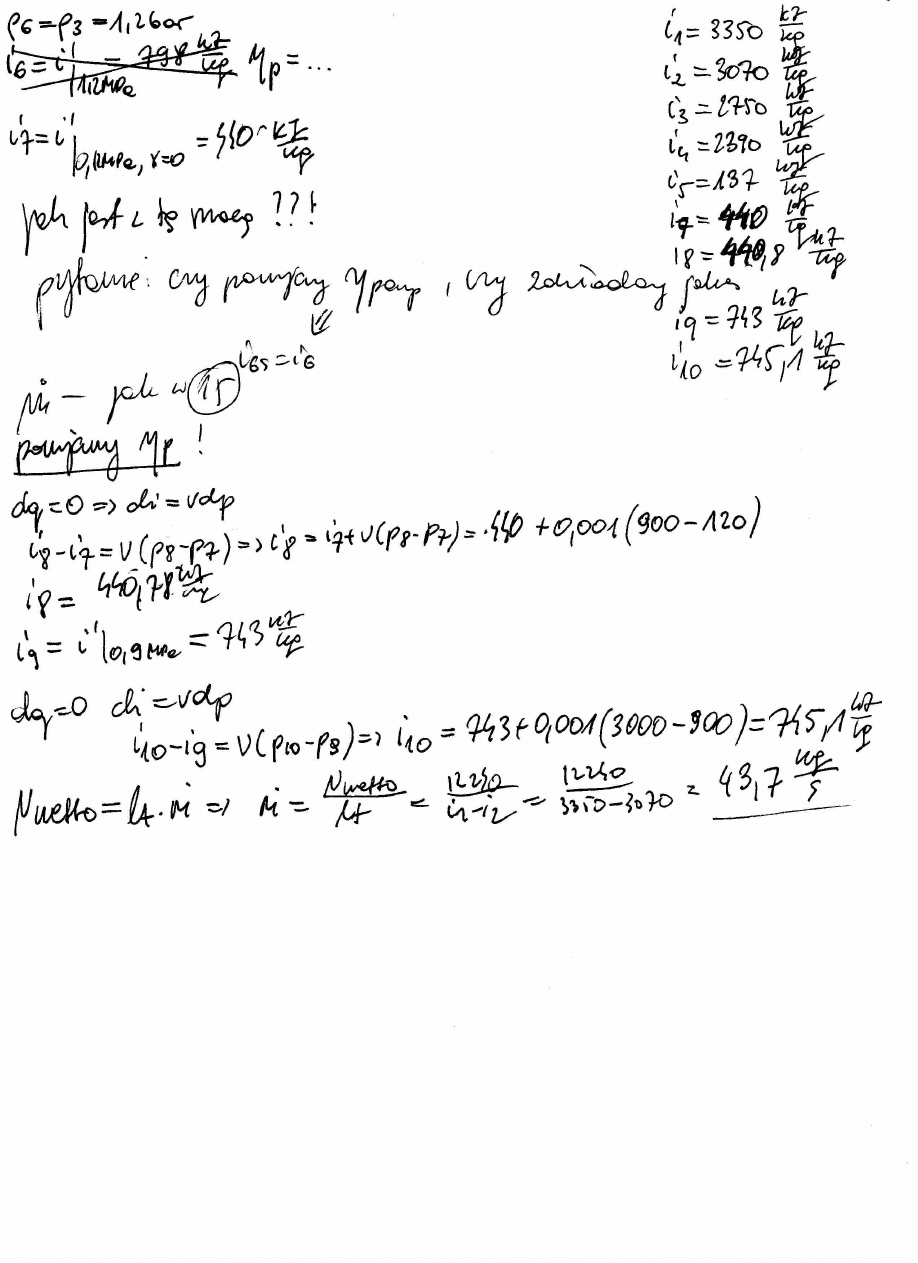 p6 = p3 = 1,2bar
i6 = i'|1,2MPa = 798 kJ/kg ηp = ...
i7 = i'|0,12MPa, x=0 = 440 kJ/kg
jak jest z tą mocą ??!
pytanie: czy pomijamy ηpomp, czy zakładamy jakąś
i6s = i6
ṁ – jak w 15
pomijamy ηp !
dq=0 => di = vdp
i8-i7 = v(p8-p7) => i8 = i7+v(p8-p7) = 440 + 0,001(900-120)
i8 = 440,78 kJ/kg
i9 = i'|0,9MPa = 743 kJ/kg
dq=0 di = vdp
i10-i9 = v(p10-p9) => i10 = 743+0,001(3000-900) = 745,1 kJ/kg
Nnetto = lt·ṁ => ṁ = Nnetto/lt = 12240/i1-i2 = 12240/3350-3070 = 43,7 kg/s
i1 = 3350 kJ/kg
i2 = 3070 kJ/kg
i3 = 2750 kJ/kg
i4 = 2390 kJ/kg
i5 = 137 kJ/kg
i7 = 440 kJ/kg
i8 = 440,8 kJ/kg
i9 = 743 kJ/kg
i10 = 745,1 kJ/kg